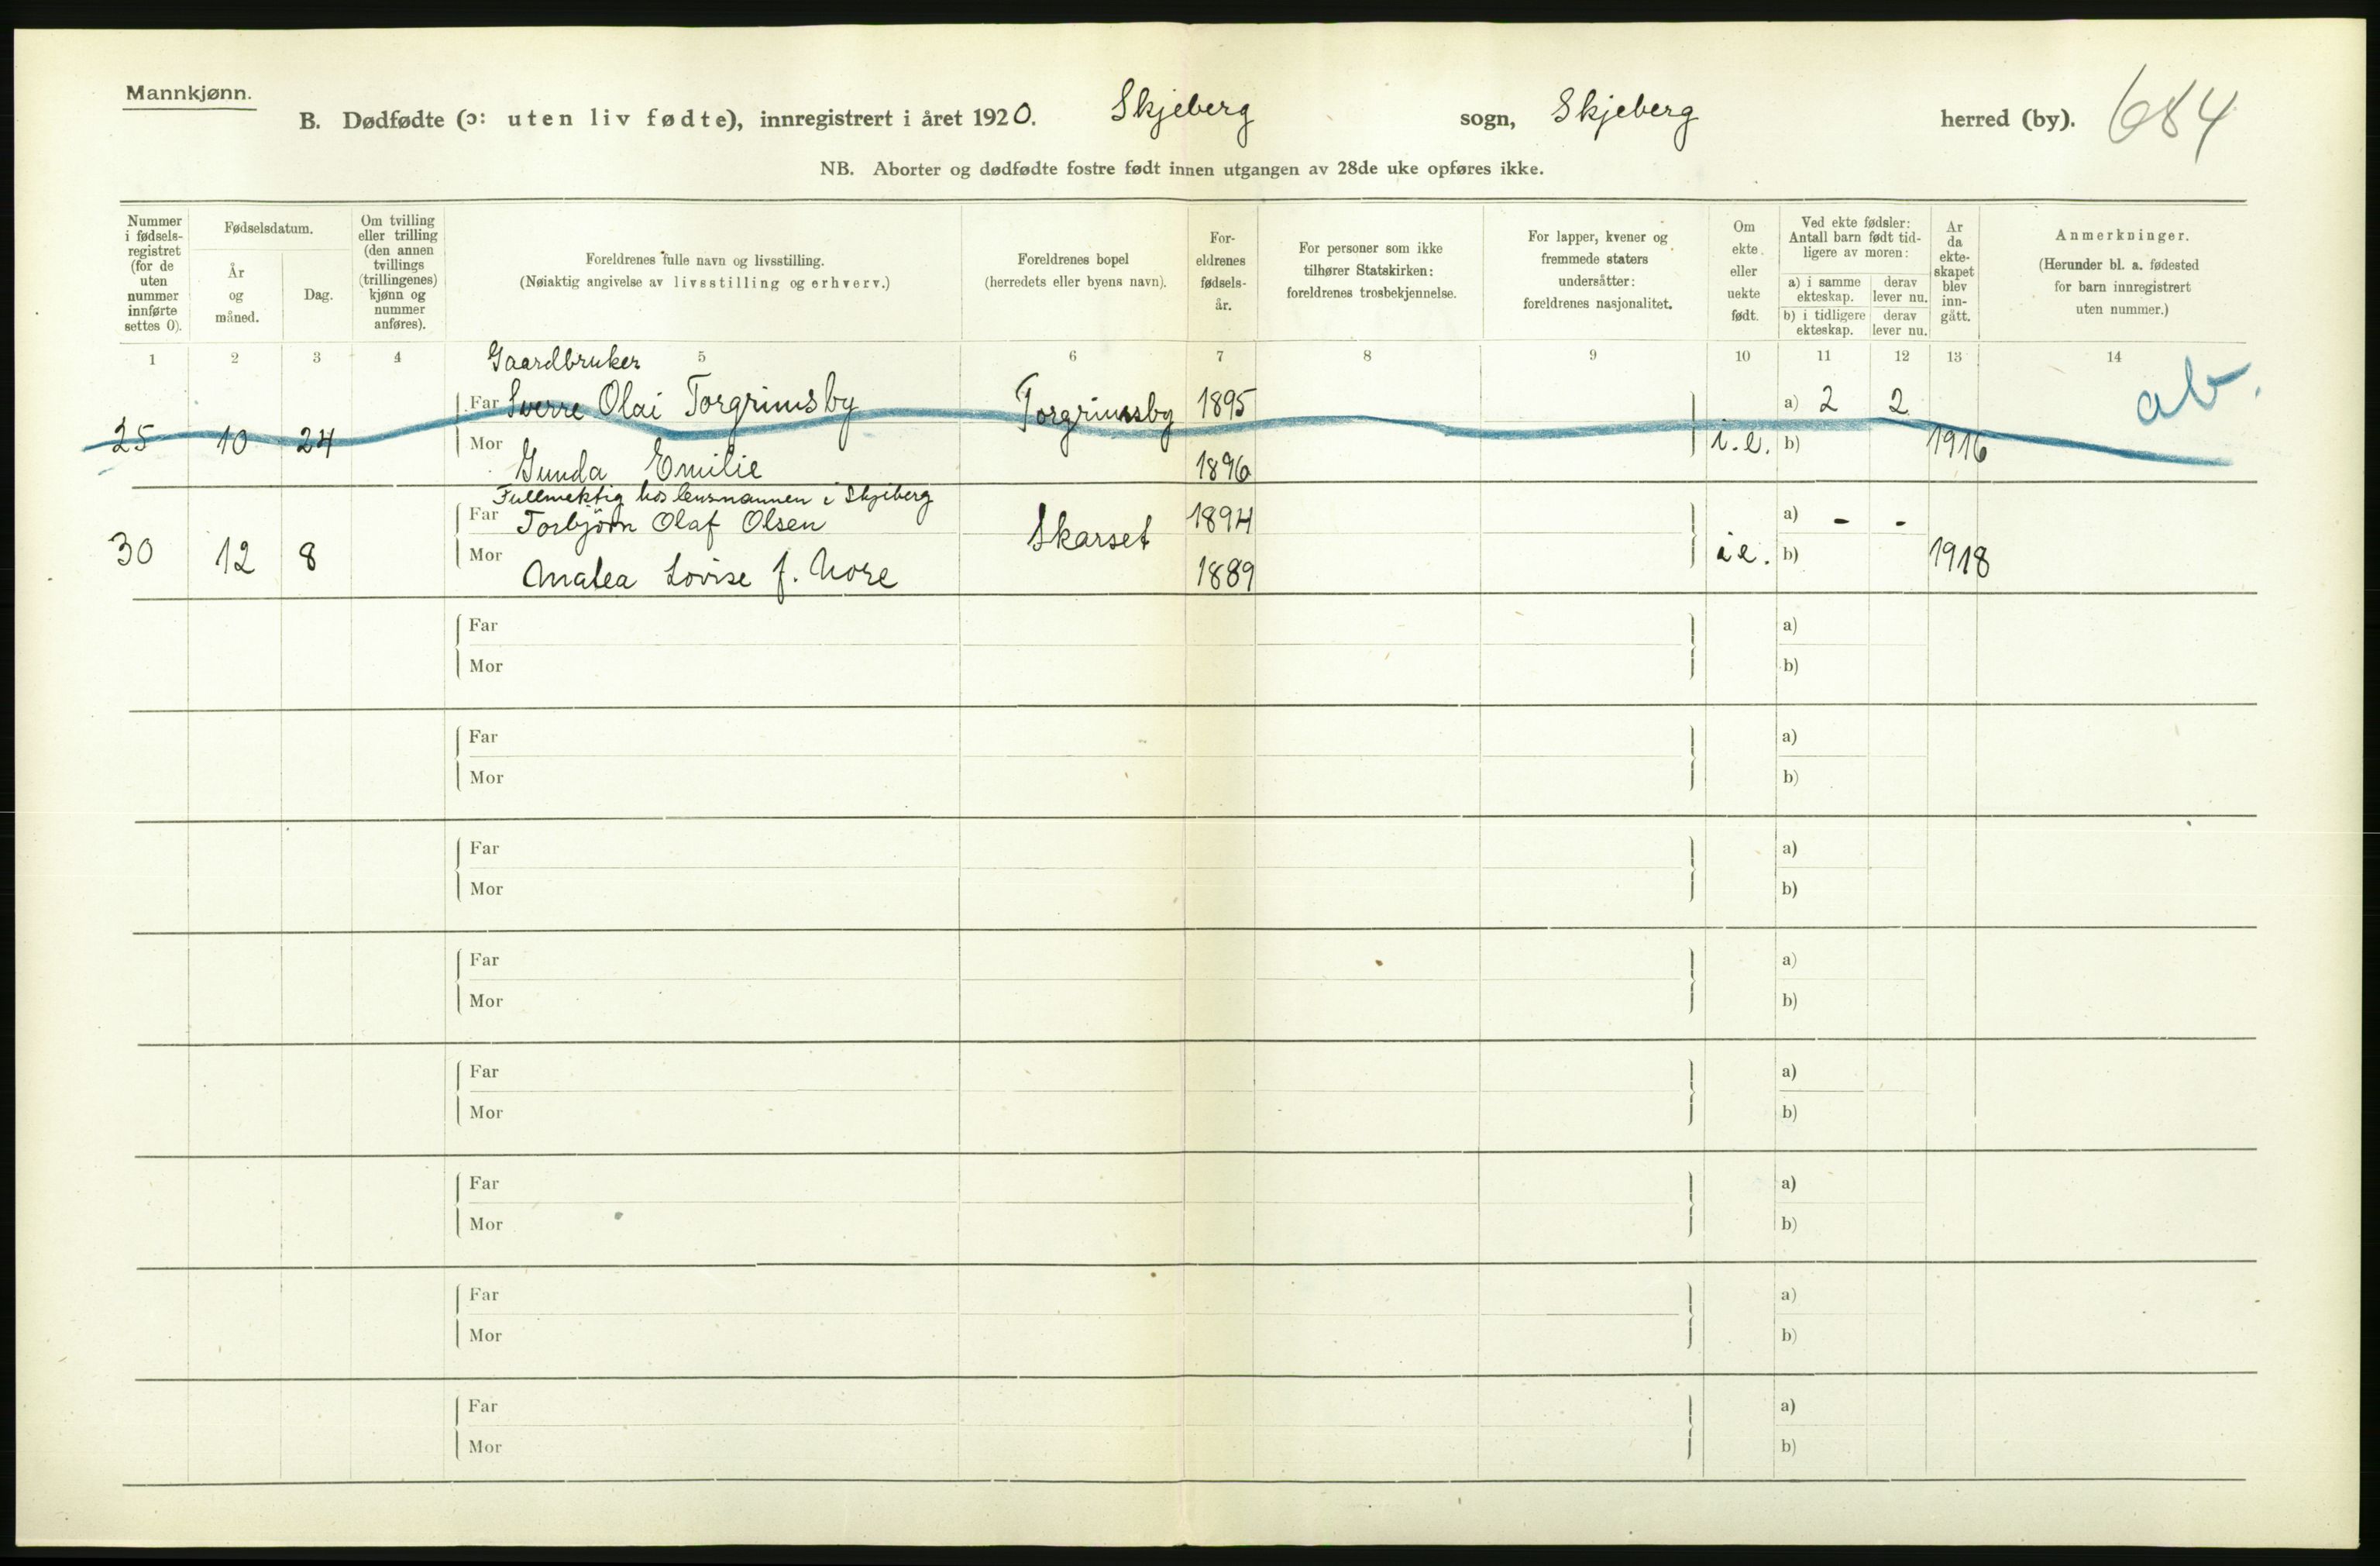 Mannkjønn.
B. Dødfødte (ɔ: uten liv fødte), innregistrert i året 1920. Skjeberg sogn, Skjeberg herred (by). 684
NB. Aborter og dødfødte fostre født innen utgangen av 28de uke opføres ikke.
Nummer i fødsels-registret (for de uten nummer innførte settes 0).
Fødselsdatum.
År og måned.
Dag.
Om tvilling eller trilling (den annen tvillings (trillingenes) kjønn og nummer anføres).
Foreldrenes fulle navn og livsstilling.
(Nøiaktig angivelse av livsstilling og erhverv.)
Foreldrenes bopel
(herredets eller byens navn).
For-eldrenes fødsels-år.
For personer som ikke tilhører Statskirken: foreldrenes trosbekjennelse.
For lapper, kvener og fremmede staters undersåtter: foreldrenes nasjonalitet.
Om ekte eller uekte født.
Ved ekte fødsler: Antall barn født tid-ligere av moren:
a) i samme ekteskap.
derav lever nu.
b) i tidligere ekteskap.
derav lever nu.
År da ekte-skapet blev inn-gått.
Anmerkninger.
(Herunder bl. a. fødested for barn innregistrert uten nummer.)
1 2 3 4 5 6 7 8 9 10 11 12 13 14
Gaardbruker
Far Sverre Olai Torgrimsby Torgrimsby 1895 a) 2 2 ab.
25 10 24 Mor Gunda Emilie 1896 i.e. b) 1916
Fullmektig hos lensmannen i Skjeberg
Far Torbjörn Olaf Olsen Skarset 1894 a) - -
30 12 8 Mor Malea Lovise f. Nore 1889 i e. b) 1918
Far a)
Mor b)
Far a)
Mor b)
Far a)
Mor b)
Far a)
Mor b)
Far a)
Mor b)
Far a)
Mor b)
Far a)
Mor b)
Far a)
Mor b)